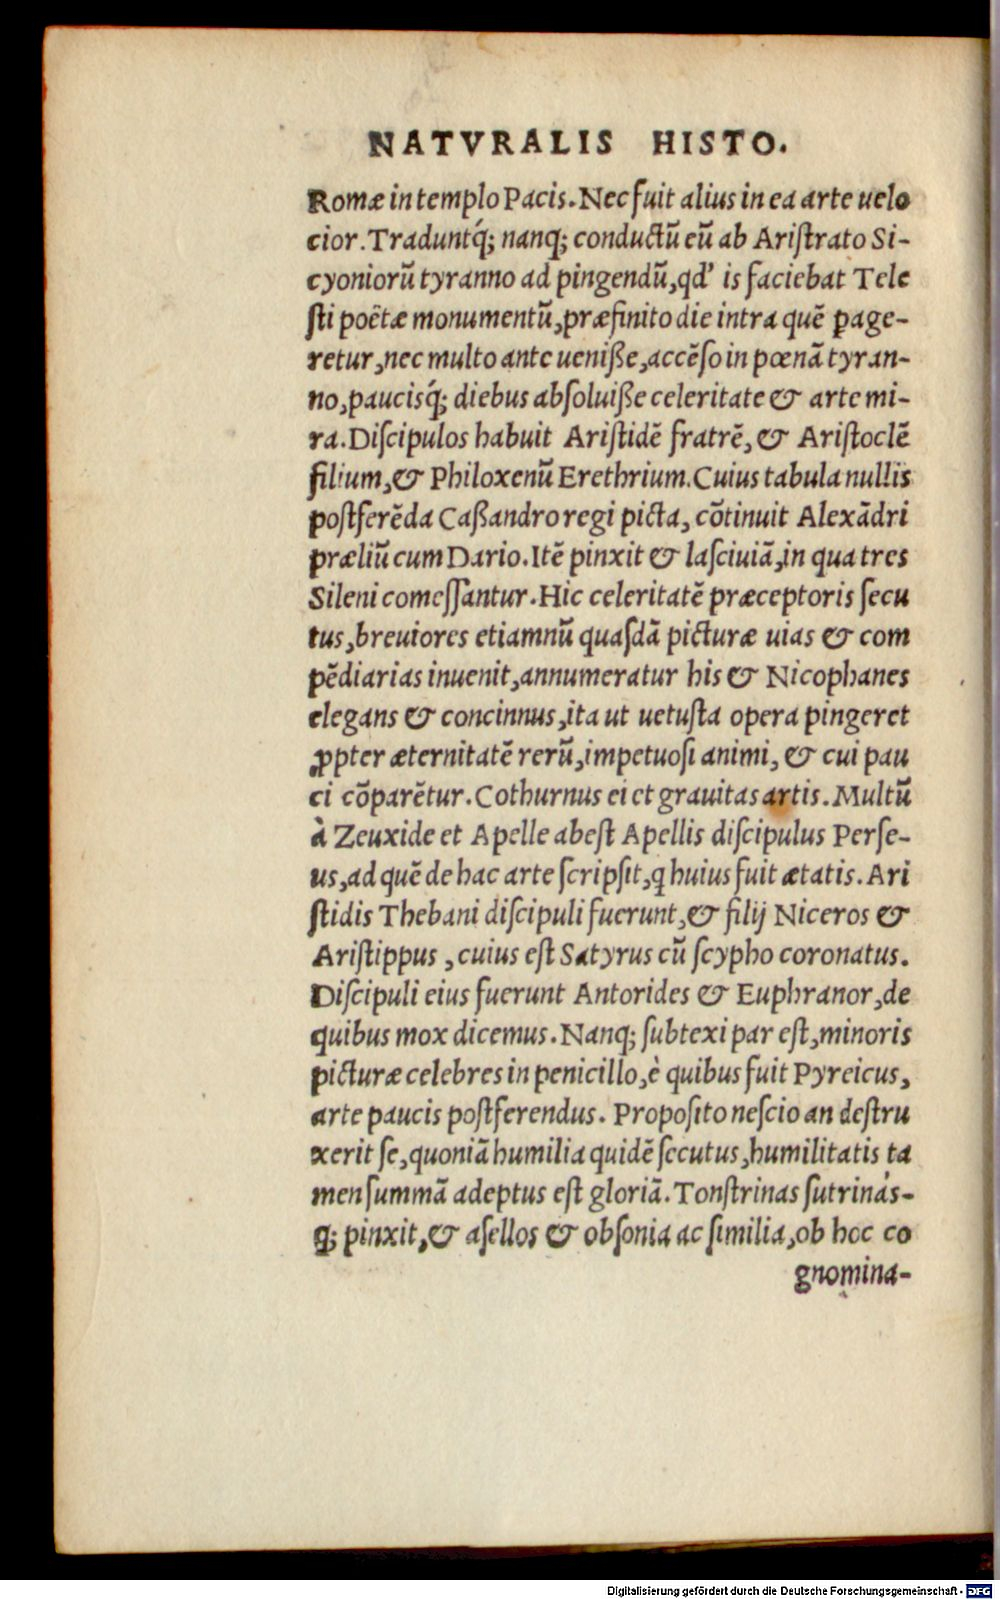 NATVRALIS HISTO.
Romæ in templo Pacis. Nec fuit alius in ea arte uelo
cior. Traduntq́; nanq; conductũ eũ ab Ariſtrato Si-
cyoniorũ tyranno ad pingendũ, qd’ is faciebat Tele
ſti poëtæ monumentũ, præfinito die intra quẽ ꝑage-
retur, nec multo ante ueniſſe, accẽſo in pœnã tyran-
no, paucisq́; diebus abſoluiſſe celeritate & arte mi-
ra. Diſcipulos habuit Ariſtidẽ fratrẽ, & Ariſtoclẽ
filium, & Philoxenũ Erethrium. Cuius tabula nullis
poſtferẽda Caſſandro regi picta, cõtinuit Alexãdri
præliũ cum Dario. Itẽ pinxit & laſciuiã, in qua tres
Sileni comeſſantur. Hic celeritatẽ præceptoris ſecu
tus, breuiores etiamnũ quaſdã picturæ uias & com
pẽdiarias inuenit, annumeratur his & Nicophanes
elegans & concinnus, ita ut uetuſta opera pingeret
ꝓpter æternitatẽ rerũ, impetuoſi animi, & cui pau
ci cõparẽtur. Cothurnus ei et grauitas artis. Multũ
à Zeuxide et Apelle abeſt Apellis diſcipulus Perſe-
us, ad quẽ de hac arte ſcripſit, ꝗ huius fuit ætatis. Ari
ſtidis Thebani diſcipuli fuerunt, & filij Niceros &
Ariſtippus, cuius eſt Satyrus cũ ſcypho coronatus.
Diſcipuli eius fuerunt Antorides & Euphranor, de
quibus mox dicemus. Nanq; ſubtexi par eſt, minoris
picturæ celebres in penicillo, è quibus fuit Pyreicus,
arte paucis poſtferendus. Propoſito neſcio an deſtru
xerit ſe, quoniã humilia quidẽ ſecutus, humilitatis ta
men ſummã adeptus eſt gloriã. Tonſtrinas ſutrinás-
q; pinxit, & aſellos & obſonia ac ſimilia, ob hoc co
gnomina-
Digitalisierung gefördert durch die Deutsche Forschungsgemeinschaft - DFG